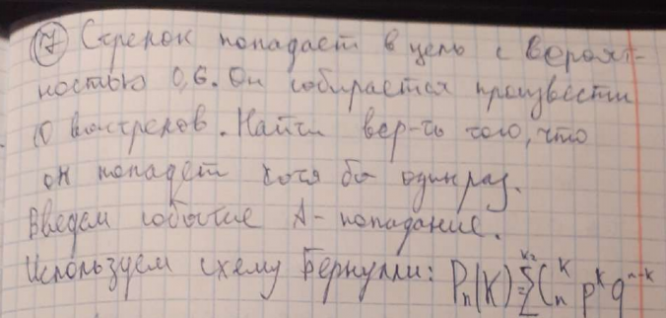 ⑦ Стрелок попадает в цель с вероят-
ностью 0,6. Он собирается произвести
10 выстрелов. Найти вер-ть того, что
он попадёт хотя бы один раз.
Введем событие A - попадание.
Используем схему Бернулли: Pₙ(K) = Σ Cₙᴷ pᴷ qⁿ⁻ᴷ